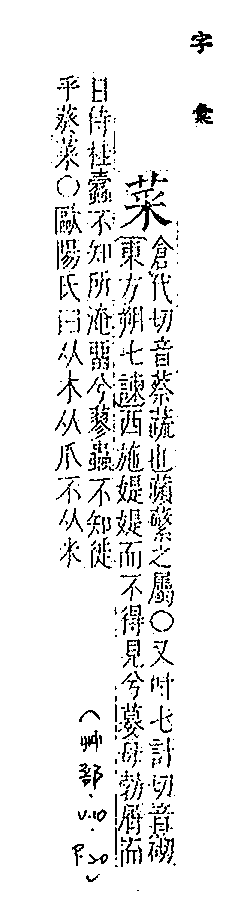 字彙
菜
倉代切音蔡蔬也蘋蘩之屬○又叶七計切音砌
東方朔七諫西施媞媞而不得見兮嫫母勃屑而
日侍桂蠹不知所淹留兮蓼蟲不知徙
乎葵菜○歐陽氏曰从木从爪不从米
(艸部.V.10.P.20)